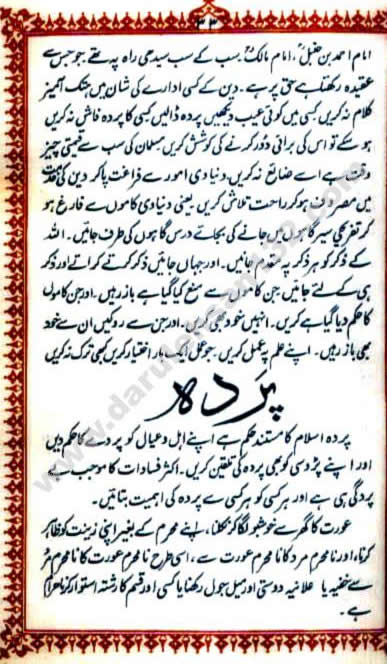 ۳۳
امام احمد بن حنبلؒ، امام مالکؒ سب کے سب سیدھی راہ پہ تھے جو جس سے
عقیدہ رکھتا ہے حق پر ہے۔ دین کے کسی ادارے کی شان میں ہتک آمیز
کلام نہ کریں کسی میں کوئی عیب دیکھیں پردہ ڈالیں کسی کا پردہ فاش نہ کریں
ہو سکے تو اس کی برائی دور کرنے کی کوشش کریں مسلمان کی سب سے قیمتی چیز
وقت ہے اسے ضائع نہ کریں۔ دنیاوی امور سے فراغت پا کر دین کی خدمت
میں مصروف ہو کر راحت تلاش کریں یعنی دنیاوی کاموں سے فارغ ہو
کر تفریحی سیر گاہوں میں جانے کی بجائے درس گاہوں کی طرف جائیں۔ اللہ
کے ذکر کو ہر ذکر پہ مقدم جانیں۔ اور جہاں جائیں ذکر کرتے کراتے اور ذکر
ہی کے لئے جائیں جن کاموں سے منع کیا گیا ہے باز رہیں۔ اور جن کاموں
کا حکم دیا گیا ہے کریں۔ انہیں خود بھی کریں۔ اور جن سے روکیں ان سے خود
بھی باز رہیں۔ اپنے علم پہ عمل کریں۔ جو عمل ایک بار اختیار کریں کبھی ترک نہ کریں
پردہ
پردہ اسلام کا مستند حکم ہے اپنے اہل و عیال کو پردے کا حکم دیں
اور اپنے پڑوسی کو بھی پردہ کی تلقین کریں۔ اکثر فسادات کا موجب بے
پردگی ہی ہے اور ہر کسی کو ہر کسی سے پردہ کی اہمیت بتائیں۔
عورت کا گھر سے خوشبو لگا کر نکلنا، اپنے محرم کے بغیر اپنی زینت کو ظاہر
کرنا، اور نا محرم مرد کا نا محرم عورت سے، اسی طرح نا محرم عورت کا نا محرم مرد
سے خفیہ یا علانیہ دوستی اور میل جول رکھنا یا کسی اور قسم کا رشتہ استوار کرنا حرام
ہے۔